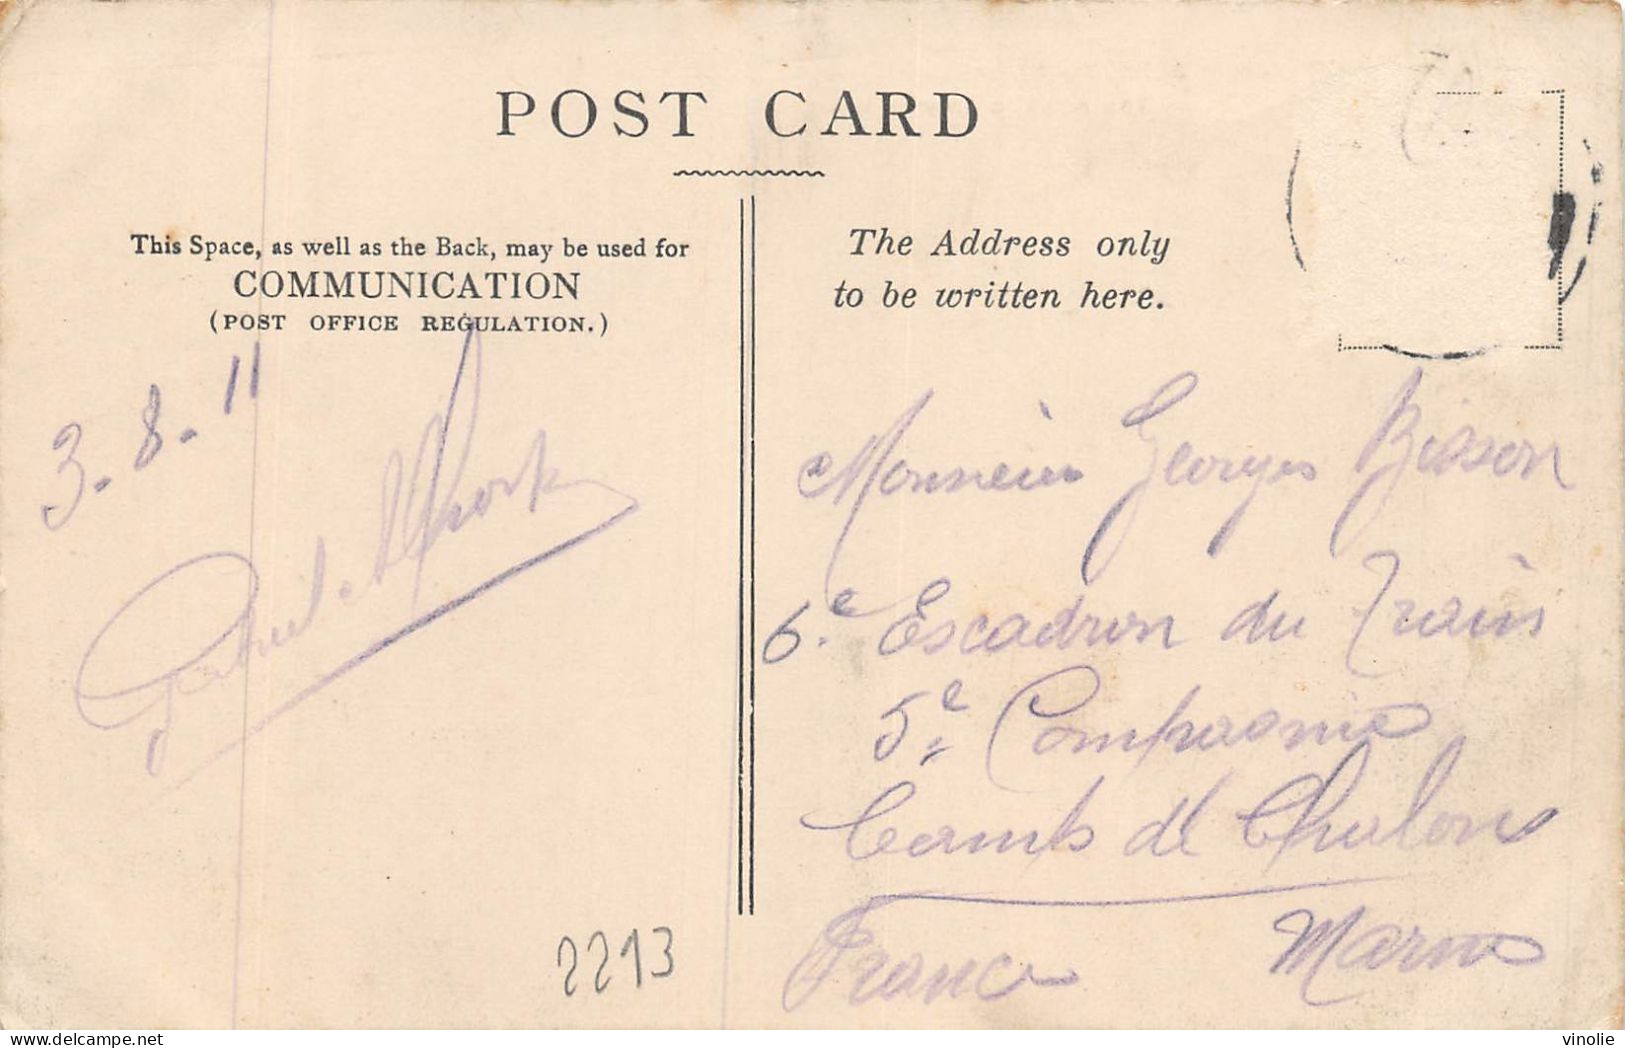 POST CARD
This Space, as well as the Back, may be used for
COMMUNICATION
(POST OFFICE REGULATION.)
3.8.11
The Address only
to be written here.
Monsieur Georges Bisson
6.e Escadron du Train
5e Compagnie
Camp de Chalons
France Marne
2213
vinolie